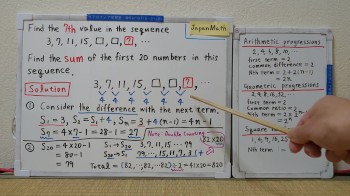 Find the 7th value in the sequence
JapanMath
3, 7, 11, 15, □, □, ?, ...
Find the sum of the first 20 numbers in this
sequence.
Solution
3, 7, 11, 15, □, □, ?, ...
4 4 4 4 4 4
① Consider the difference with the next term.
S₁ = 3, S₂ = S₁+4, Sₙ = 3+4(n-1) = 4n-1
S₇ = 4×7-1 = 28-1 = 27
Note: Double Counting
② S₂₀ = 4×20-1
= 80-1
= 79
S₁→S₂₀ 3, 7, 11, 15, ..., 79
S₂₀→S₁ 79, ..., 15, 11, 7, 3
82×20
Total = (82, ..., 82) ÷ 2 = 41×20 = 820
Arithmetic progressions
2, 4, 6, 8, 10, ...
first term = 2
common difference = 2
Nth term = 2+2(n-1)
= 2n
Geometric progressions
2, 4, 8, 16, 32, ...
first term = 2
common ratio = 2
Nth term =
Square
1, 4, 9, 16, 25
Nth term =